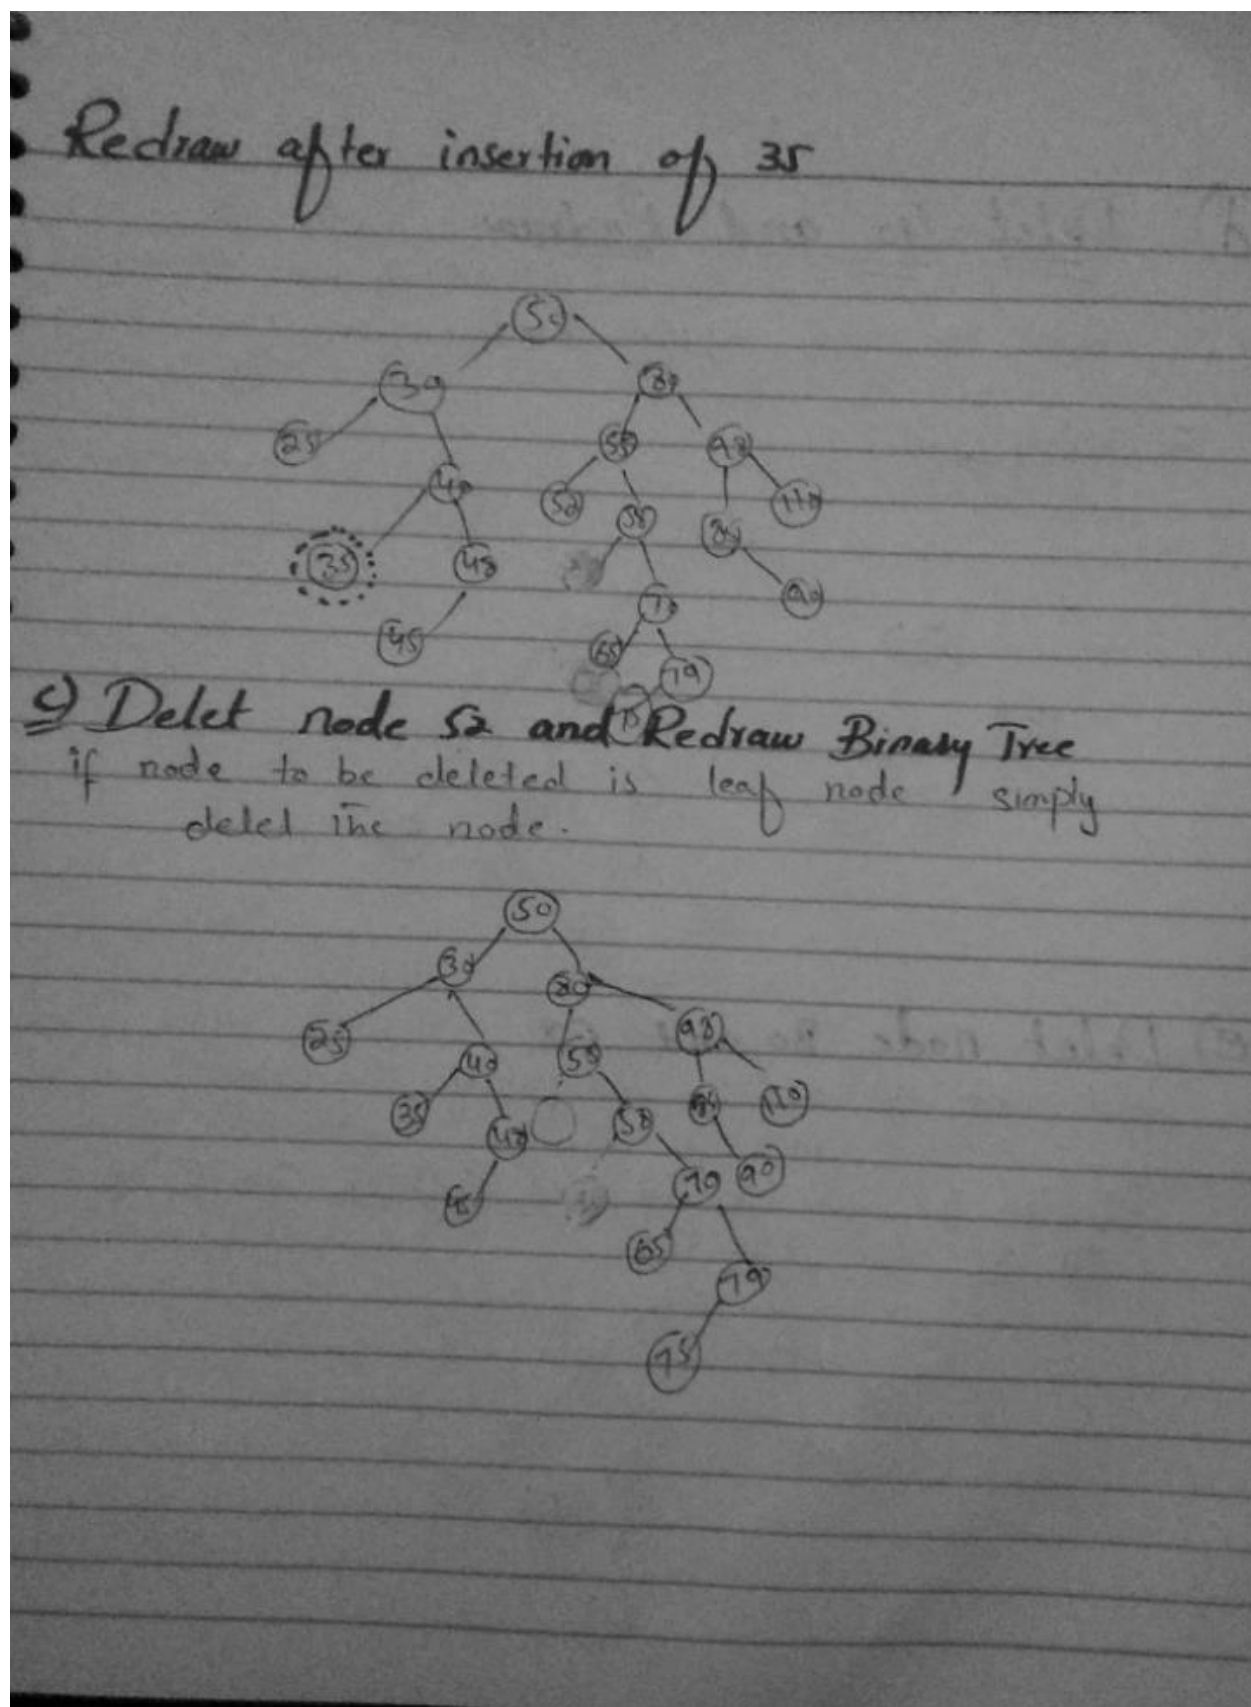 Redraw after insertion of 35
50
30 80
25 55 98
40 52 58 110
35 48 85
70 90
45 65 79
75
c) Delet node 52 and Redraw Binary Tree
if node to be deleted is leaf node simply
delet the node.
50
30 80
25 98
40 55
35 48 58 85 110
45 70 90
65
79
75